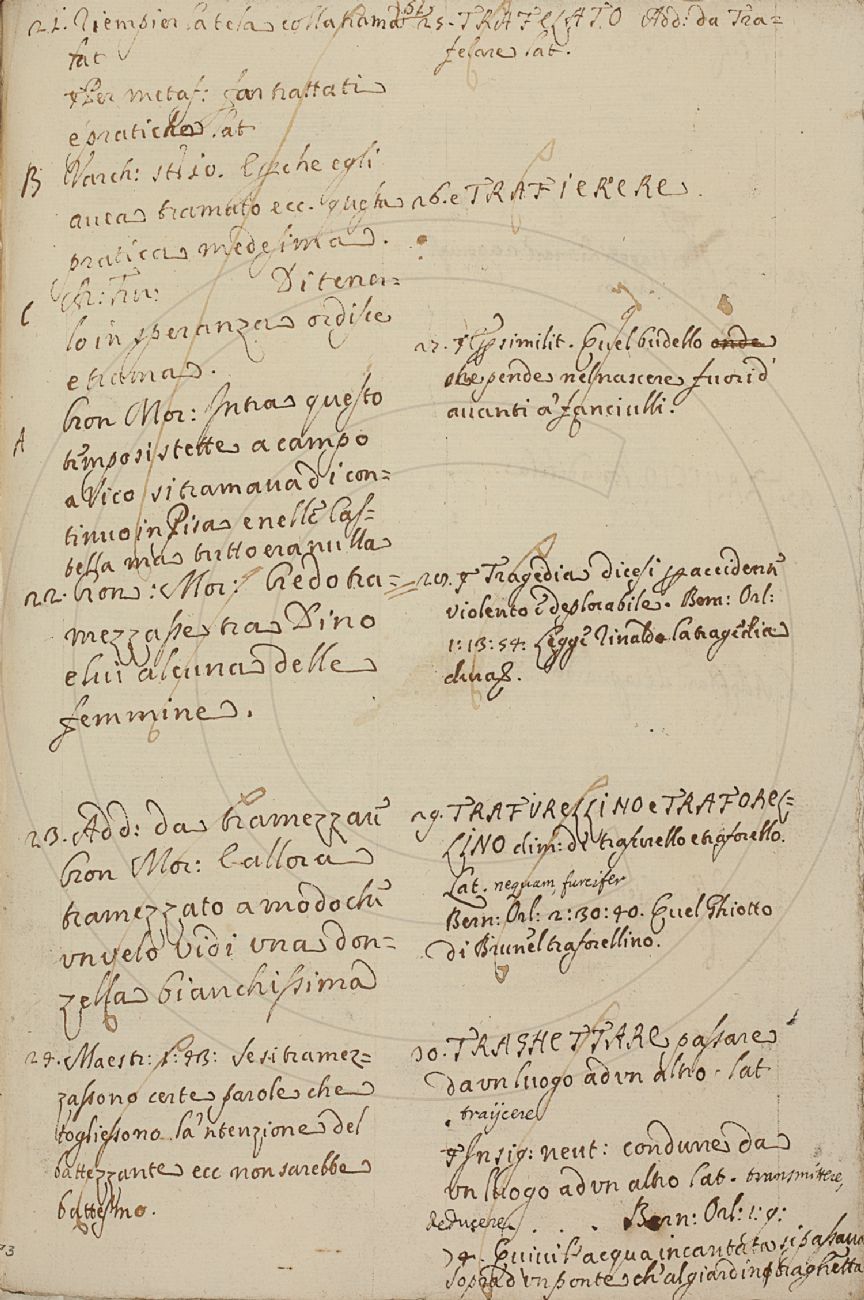 21. Riempier la tela colla trama
lat
Per metaf: far trattati
e pratiche lat
B Varch: stor: 10. E che egli
avea tramato ecc. questa
pratica medesima.
C Di tener=
lo in speranza ordisce
e trama.
A Cron Mor: Intra questo
tempo si stette a campo
a Vico si tramava di con=
tinuo in Pisa e nelle Cas=
tella ma tutto era nulla
22. Cron: Mor: Credo tra=
mezzasse tra Dino
e lui alcuna delle
femmine.
23. Add: da Tramezzare
Cron Mor: E allora
tramezzato a modo che
un velo vidi una don=
zella bianchissima
24. Maestr: 1: 43: Se si tramez=
zassono certe parole che
togliessono la 'ntenzione del
battezzante ecc non sarebbe
battesimo.
25. TRAFELATO Add: da Tra=
felare lat.
26. e TRAFIERERE
27. similit. Quel budello onde
che pende nel nascere fuori d'
avanti a' fanciulli.
28. Tragedia dicesi p accidente
violento e deplorabile. Bern: Orl:
1: 13: 54: Legge Rinaldo la tragedia
29. TRAFURELLINO e TRAFOREL=
LINO dim: di trafurello e traforello.
Lat. nequam, furcifer
Bern: Orl: 2: 30: 40. Quel Ghiotto
di Brunel traforellino.
30. TRAGHETTARE passare
da un luogo ad un altro. lat
. traijcere
In sig: neut: condurre da
un luogo ad un altro lat. transmittere,
deducere. . . . Bern: Orl: 1: 9:
74. Quivi l'acqua incantata si passava
Sopra d'un ponte ch'al giardin traghetta
73